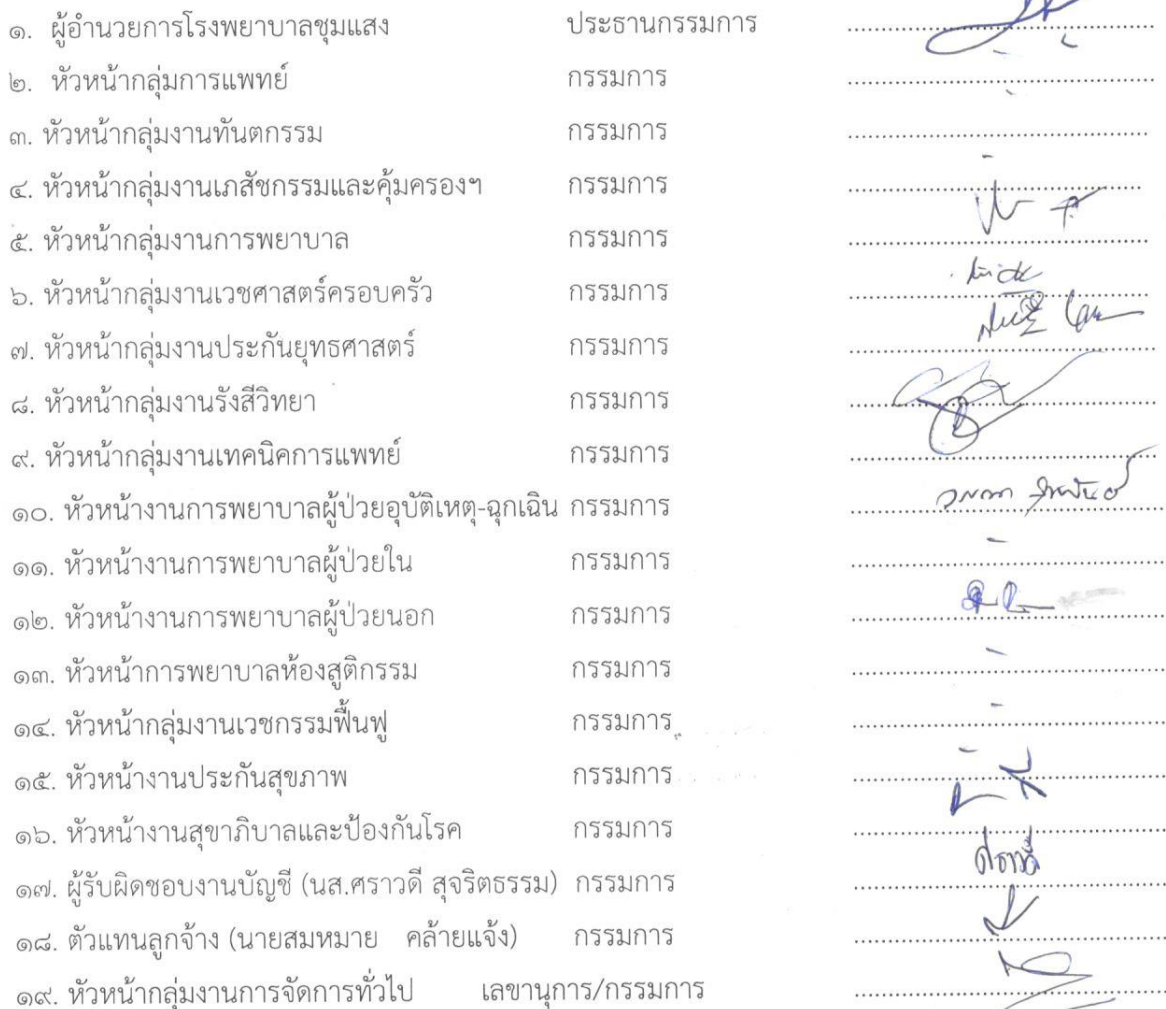 ๑. ผู้อำนวยการโรงพยาบาลชุมแสง ประธานกรรมการ
๒. หัวหน้ากลุ่มการแพทย์ กรรมการ
๓. หัวหน้ากลุ่มงานทันตกรรม กรรมการ
๔. หัวหน้ากลุ่มงานเภสัชกรรมและคุ้มครองฯ กรรมการ
๕. หัวหน้ากลุ่มงานการพยาบาล กรรมการ
๖. หัวหน้ากลุ่มงานเวชศาสตร์ครอบครัว กรรมการ
๗. หัวหน้ากลุ่มงานประกันยุทธศาสตร์ กรรมการ
๘. หัวหน้ากลุ่มงานรังสีวิทยา กรรมการ
๙. หัวหน้ากลุ่มงานเทคนิคการแพทย์ กรรมการ
๑๐. หัวหน้างานการพยาบาลผู้ป่วยอุบัติเหตุ-ฉุกเฉิน กรรมการ
๑๑. หัวหน้างานการพยาบาลผู้ป่วยใน กรรมการ
๑๒. หัวหน้างานการพยาบาลผู้ป่วยนอก กรรมการ
๑๓. หัวหน้าการพยาบาลห้องสูติกรรม กรรมการ
๑๔. หัวหน้ากลุ่มงานเวชกรรมฟื้นฟู กรรมการ
๑๕. หัวหน้างานประกันสุขภาพ กรรมการ
๑๖. หัวหน้างานสุขาภิบาลและป้องกันโรค กรรมการ
๑๗. ผู้รับผิดชอบงานบัญชี (นส.ศราวดี สุจริตธรรม) กรรมการ ศราวดี
๑๘. ตัวแทนลูกจ้าง (นายสมหมาย คล้ายแจ้ง) กรรมการ
๑๙. หัวหน้ากลุ่มงานการจัดการทั่วไป เลขานุการ/กรรมการ